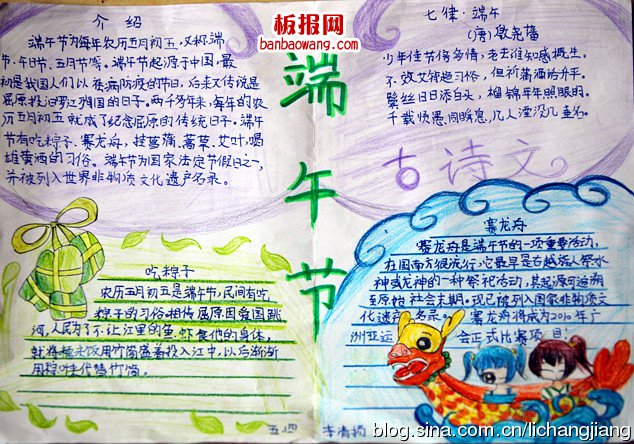 介绍
端午节为每年农历五月初五，又称端
节、午日节、五月节等。端午节起源于中国，最
初是我国人们以祛病防疫的节日，后来又传说是
屈原投汨罗江殉国的日子。两千多年来，每年的农
历五月初五就成了纪念屈原的传统日子。端午
节有吃粽子、赛龙舟，挂菖蒲、蒿草、艾叶，喝
雄黄酒的习俗。端午节为国家法定节假日之一，
并被列入世界非物质文化遗产名录。
板报网
banbaowang.com
端
午
节
七律·端午
(唐)殷尧藩
少年佳节倍多情，老去谁知感慨生，
不效艾符趋习俗，但祈蒲酒话升平。
鬓丝日日添白头，榴锦年年照眼明，
千载贤愚同瞬息，几人湮没几垂名。
古诗文
吃粽子
农历五月初五是端午节，民间有吃
粽子的习俗。相传屈原因爱国跳
河，人民为了不让江里的鱼虾食他的身体，
就将糯米饭用竹筒盛着投入江中，以后渐渐
用粽叶代替竹筒。
赛龙舟
赛龙舟是端午节的一项重要活动，
在国南方很流行，它最早是古越族人祭水
神或龙神的一种祭祀活动，其起源可追溯
至原始社会末期。现已被列入国家非物质文
化遗产名录。赛龙舟将成为2010年广
州亚运会正式比赛项目！
五.四
李清扬
blog.sina.com.cn/lichangjiang